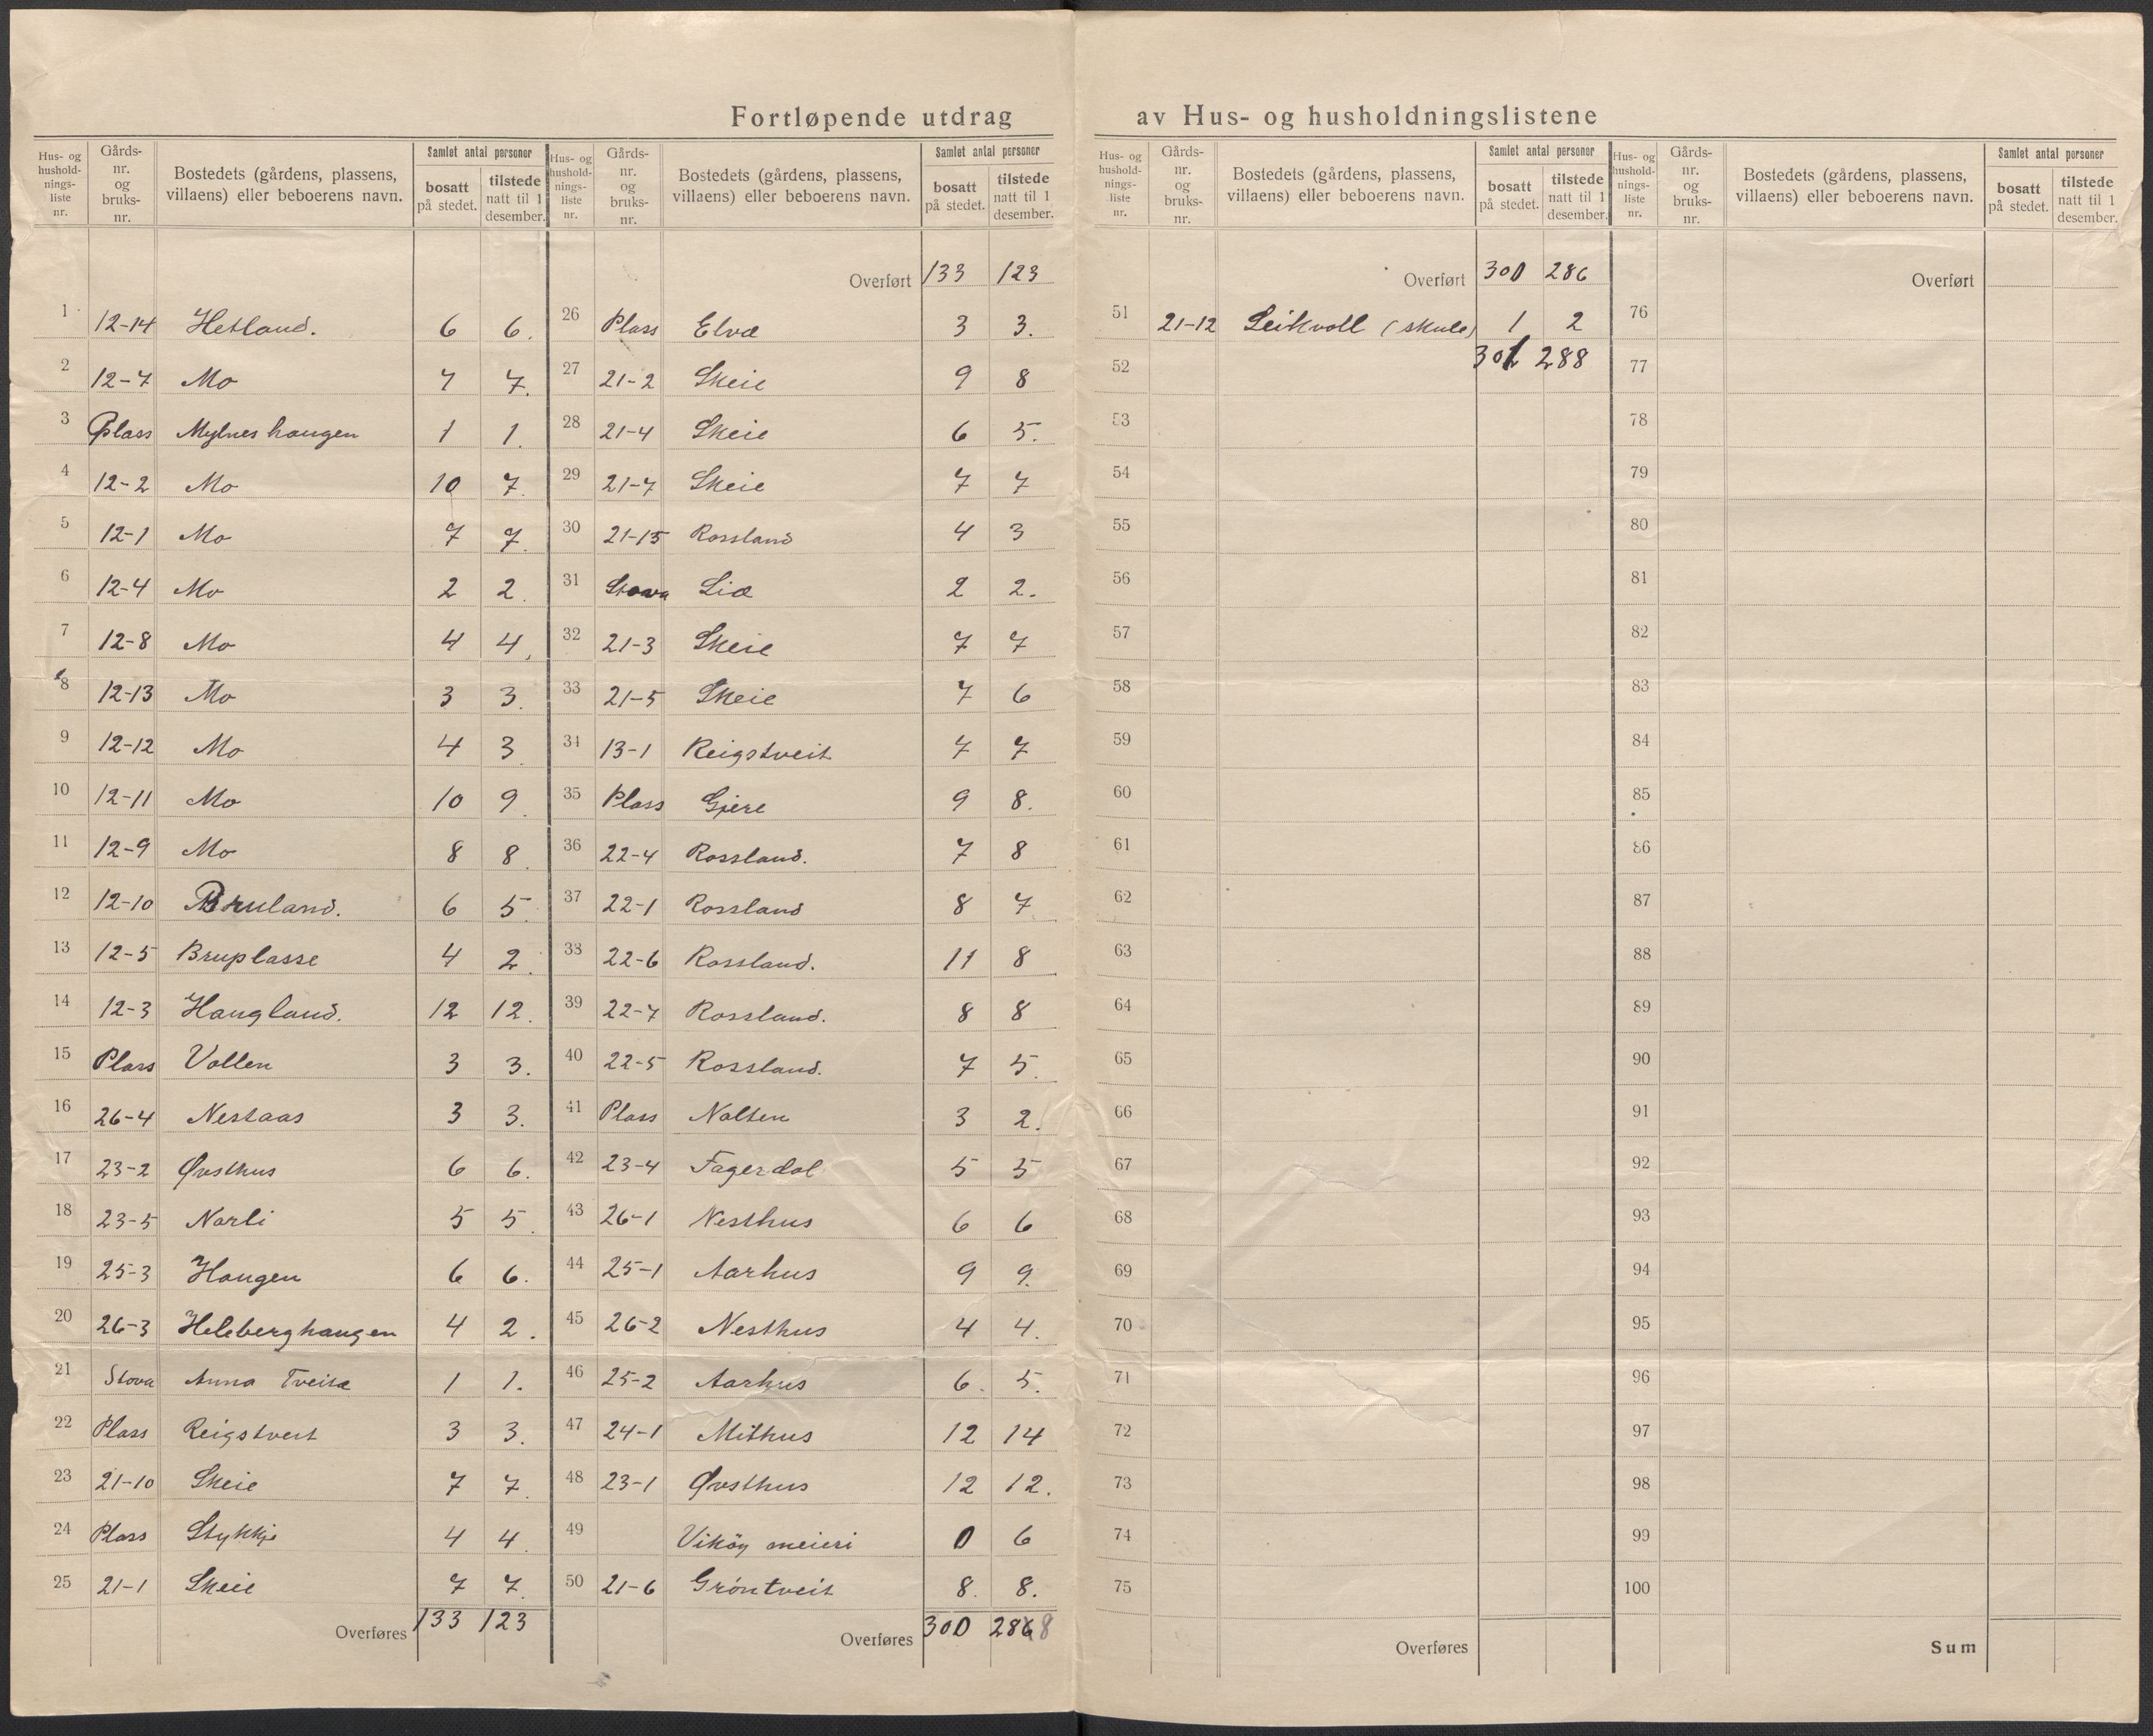 Fortløpende utdrag av Hus- og husholdningslistene
Hus- og hushold-nings-liste nr. Gårds-nr. og bruks-nr. Bostedets (gårdens, plassens, villaens) eller beboerens navn. Samlet antal personer bosatt på stedet. tilstede natt til 1 desember.
1 12-14 Hetland. 6 6.
2 12-7 Mo 7 7.
3 Plass Mylneshaugen 1 1.
4 12-2 Mo 10 7.
5 12-1 Mo 7 7.
6 12-4 Mo 2 2.
7 12-8 Mo 4 4.
8 12-13 Mo 3 3.
9 12-12 Mo 4 3.
10 12-11 Mo 10 9.
11 12-9 Mo 8 8.
12 12-10 Bruland. 6 5.
13 12-5 Bruplasse 4 2.
14 12-3 Haugland. 12 12.
15 Plass Vollen 3 3.
16 26-4 Nestaas 3 3.
17 23-2 Øvsthus 6 6.
18 23-5 Narli 5 5.
19 25-3 Haugen 6 6.
20 26-3 Heleberghaugen 4 2.
21 Stova Anna Tveita 1 1.
22 Plass Reigstveit 3 3.
23 21-10 Skeie 7 7.
24 Plass Stykkje 4 4.
25 21-1 Skeie 7 7.
Overføres 133 123
Hus- og hushold-nings-liste nr. Gårds-nr. og bruks-nr. Bostedets (gårdens, plassens, villaens) eller beboerens navn. Samlet antal personer bosatt på stedet. tilstede natt til 1 desember.
Overført 133 123
26 Plass Elva 3 3.
27 21-2 Skeie 9 8
28 21-4 Skeie 6 5.
29 21-7 Skeie 7 7
30 21-15 Rossland 4 3
31 Stova Lia 2 2.
32 21-3 Skeie 7 7
33 21-5 Skeie 7 6
34 13-1 Reigstveit 7 7
35 Plass Gjere 9 8.
36 22-4 Rossland. 7 8
37 22-1 Rossland 8 7
38 22-6 Rossland. 11 8
39 22-7 Rossland. 8 8
40 22-5 Rossland. 7 5.
41 Plass Nalten 3 2.
42 23-4 Fagerdal 5 5
43 26-1 Nesthus 6 6
44 25-1 Aarhus 9 9.
45 26-2 Nesthus 4 4.
46 25-2 Aarhus 6. 5.
47 24-1 Mithus 12 14
48 23-1 Øvsthus 12 12.
49 Vikøy meieri 0 6
50 21-6 Gröntveit 8. 8.
Overføres 300 286 8
Hus- og hushold-nings-liste nr. Gårds-nr. og bruks-nr. Bostedets (gårdens, plassens, villaens) eller beboerens navn. Samlet antal personer bosatt på stedet. tilstede natt til 1 desember.
Overført 300 286
51 21-12 Leikvoll (skule) 1 2
52 301 288
53
54
55
56
57
58
59
60
61
62
63
64
65
66
67
68
69
70
71
72
73
74
75
Overføres
Hus- og hushold-nings-liste nr. Gårds-nr. og bruks-nr. Bostedets (gårdens, plassens, villaens) eller beboerens navn. Samlet antal personer bosatt på stedet. tilstede natt til 1 desember.
Overført
76
77
78
79
80
81
82
83
84
85
86
87
88
89
90
91
92
93
94
95
96
97
98
99
100
Sum